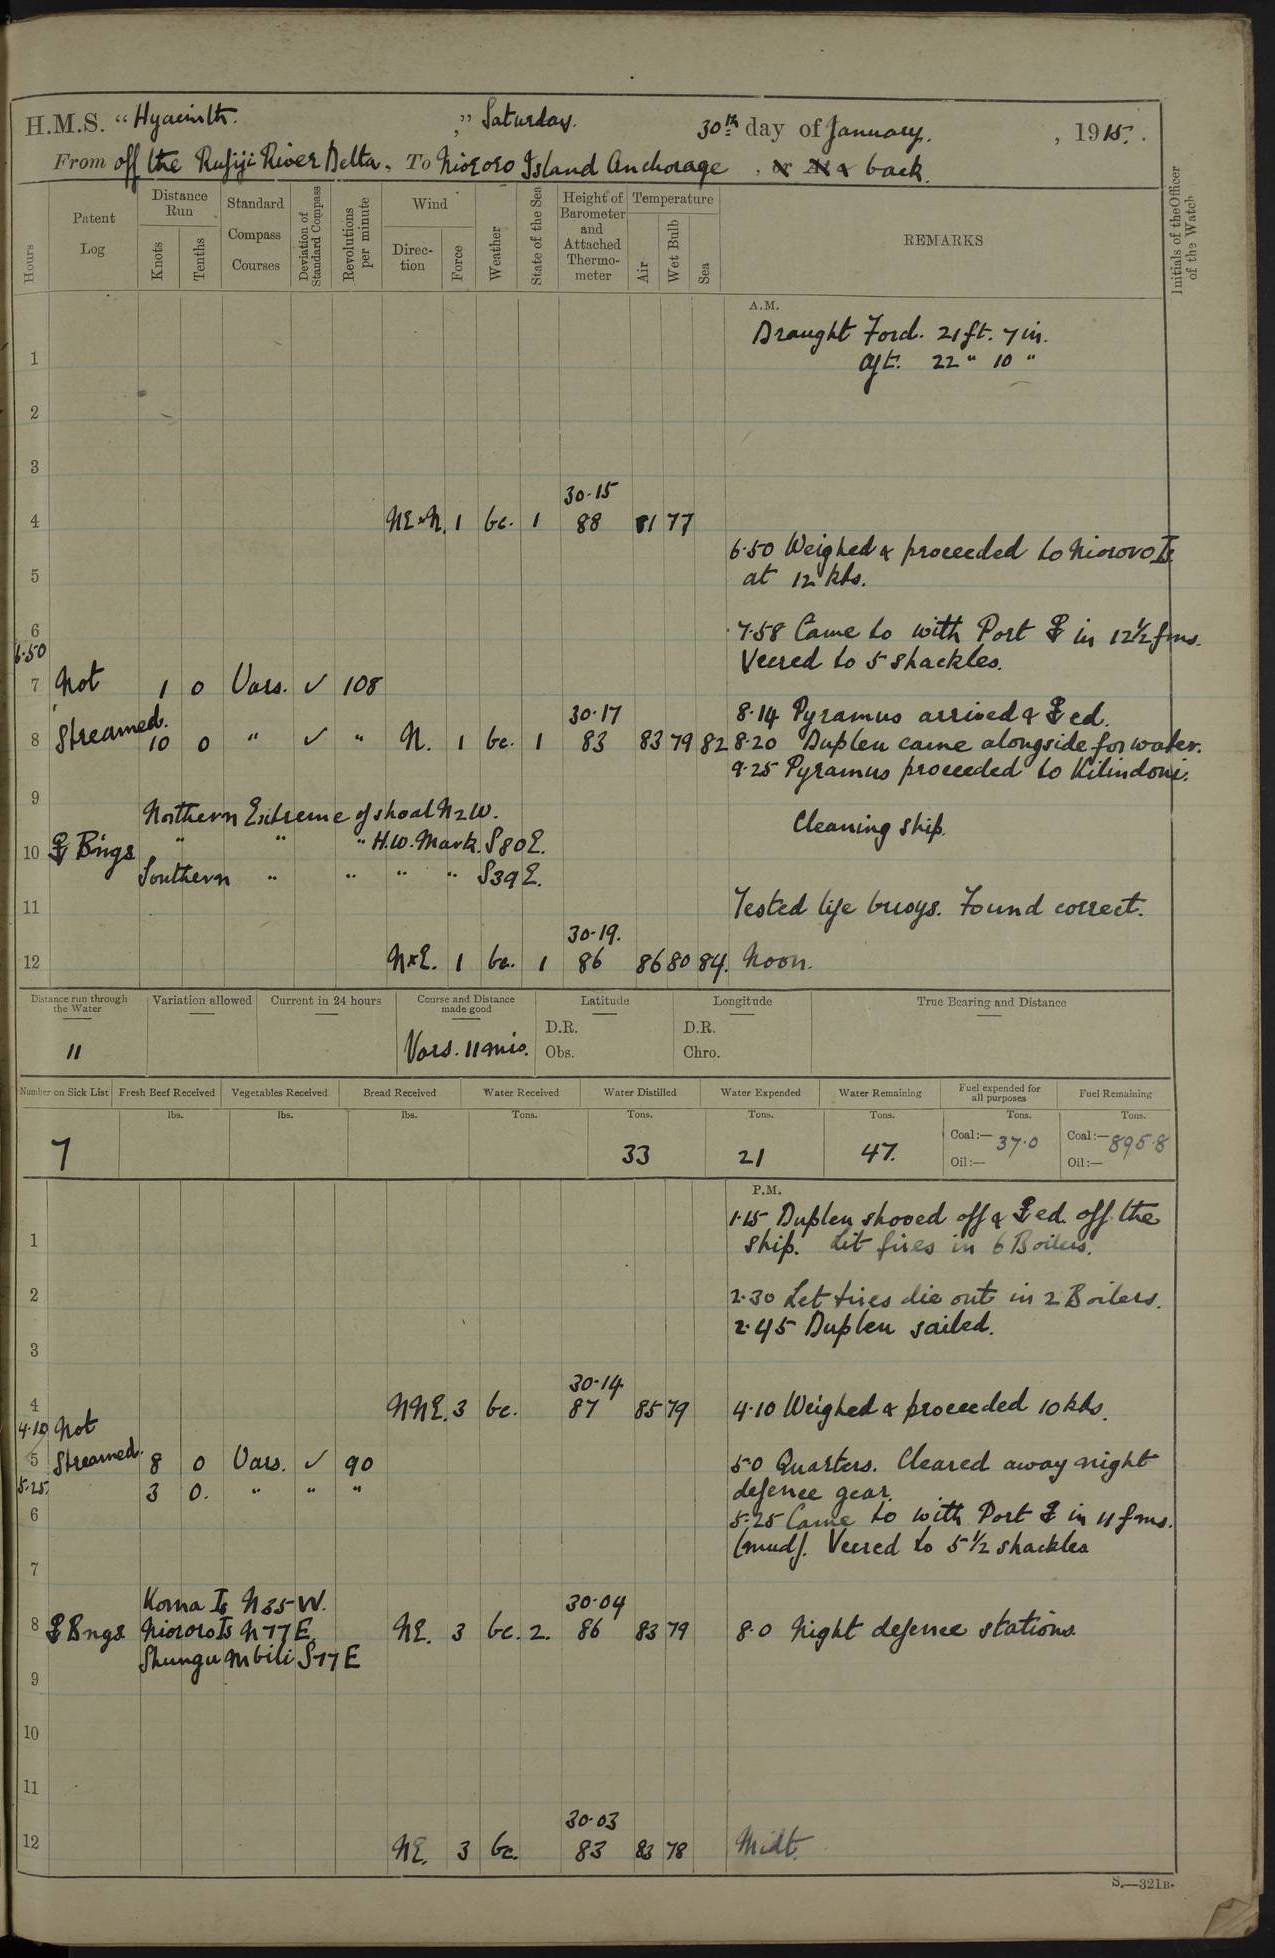 H.M.S. "Hyacinth." Saturday. 30th day of January, 1915.
From off the Rufiji River Delta, To Niororo Island Anchorage, & back.
Hours
Patent Log
Distance Run
Knots
Tenths
Standard Compass Courses
Deviation of Standard Compass
Revolutions per minute
Wind
Direction
Force
Weather
State of the Sea
Height of Barometer and Attached Thermometer
Temperature
Air
Wet Bulb
Sea
REMARKS
Initials of the Officer of the Watch
A.M.
Draught Ford. 21ft. 7in.
1 aft. 22 " 10 "
2
3
30.15
4 NE×N. 1 bc. 1 88 81 77
6.50 Weighed & proceeded to Niororo Is
5 at 12 kts.
6
6.50
7.58 Came to with Port ⚓ in 12½ fms.
Veered to 5 shackles.
7 Not 1 0 Vars. ✓ 108
30.17 8.14 Pyramus arrived & ⚓ed.
8 Streamed. 10 0 " ✓ " N. 1 bc. 1 83 83 79 82 8.20 Duplex came alongside for water.
9.25 Pyramus proceeded to Kilindoni.
9
Northern Extreme of shoal N2W.
Cleaning ship.
10 ⚓ Bngs " " " H.W. Mark. S80E.
Southern " " " " S39E.
11 Tested life buoys. Found correct.
30.19.
12 N×E. 1 bc. 1 86 86 80 84. Noon.
Distance run through the Water
Variation allowed
Current in 24 hours
Course and Distance made good
Latitude
Longitude
True Bearing and Distance
D.R. D.R.
11 Vars. 11 mis. Obs. Chro.
Number on Sick List
Fresh Beef Received
Vegetables Received
Bread Received
Water Received
Water Distilled
Water Expended
Water Remaining
Fuel expended for all purposes
Fuel Remaining
lbs. lbs. lbs. Tons. Tons. Tons. Tons. Tons. Tons.
7 33 21 47. Coal:— 37.0 Coal:— 895.8
Oil:— Oil:—
P.M.
1.15 Duplex shoved off & ⚓ed. off the
1 ship. Lit fires in 6 Boilers.
2 2.30 Let fires die out in 2 Boilers.
2.45 Duplex sailed.
3
30.14
4 NNE. 3 bc. 87 85 79 4.10 Weighed & proceeded 10 kts.
4.10 Not
5 Streamed. 8 0 Vars. ✓ 90 5.0 Quarters. Cleared away night
5.25 3 0. " " " defence gear.
6 5.25 Came to with Port ⚓ in 11 fms.
(mud). Veered to 5½ shackles
7
Koma Is N35W. 30.04
8 ⚓ Bngs Niororo Is N77E NE. 3 bc. 2. 86 83 79 8.0 Night defence stations.
Shungu Mbili S77E
9
10
11
30.03
12 NE. 3 bc. 83 83 78 Midt.
S.—321B.